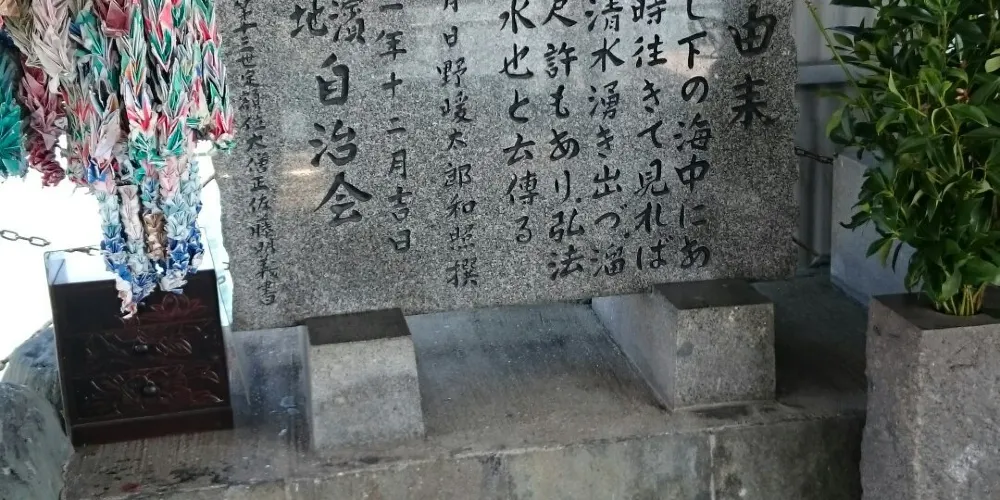 由来
し下の海中にあ
時往きて見れば
清水湧き出づ溜
尺許もあり弘法
水也と云傳る
月日野暖太郎和照撰
一年十二月吉日
濱自治会
地
第十二世定額位大僧正佐藤明義書